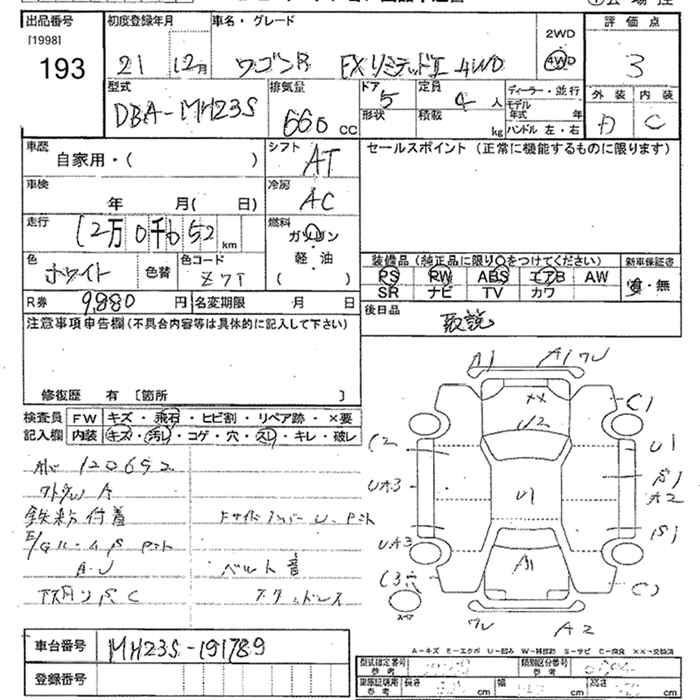 出品番号
[1998]
193
初度登録年月
21 12月
車名・グレード
ワゴンR FXリミテッドⅡ 4WD
2WD
4WD
評価点
3
外装 内装
A C
型式
DBA-MH23S
排気量
660 CC
ドア
5
形状
定員
4 人
積載
kg
ディーラー・並行
モデル
年式 年
ハンドル 左・右
車歴
自家用・( )
シフト
AT
セールスポイント(正常に機能するものに限ります)
車検
年 月( 日)
冷房
AC
走行
12万0千652 km
燃料
ガソリン
軽・油
( )
色
ホワイト
色替
色コード
Z7T
装備品(純正品に限り○をつけてください)
PS PW ABS エアB AW
SR ナビ TV カワ
新車保証書
有・無
R券
9,880 円
名変期限 月 日
後日品
取説
注意事項申告欄(不具合内容等は具体的に記入して下さい)
修復歴 有〔箇所 〕
検査員
記入欄
FW キズ・飛石・ヒビ割・リペア跡・×要
内装 キズ・汚レ・コゲ・穴・スレ・キレ・破レ
120652
鉄粉付着
ベルト音
A1 A1 ワレ
××
U2
C1
C2
U1
UA3
U1
A2
UA3
A1
C3
スペア
ワレ A2
車台番号
MH23S-191789
登録番号
A-キズ E-エクボ U-凹み W-補修跡 S-サビ C-腐食 ××-交換済
型式指定番号
参考
類別区分番号
参考
車庫証明用
参考
長さ cm
幅 cm
高さ cm